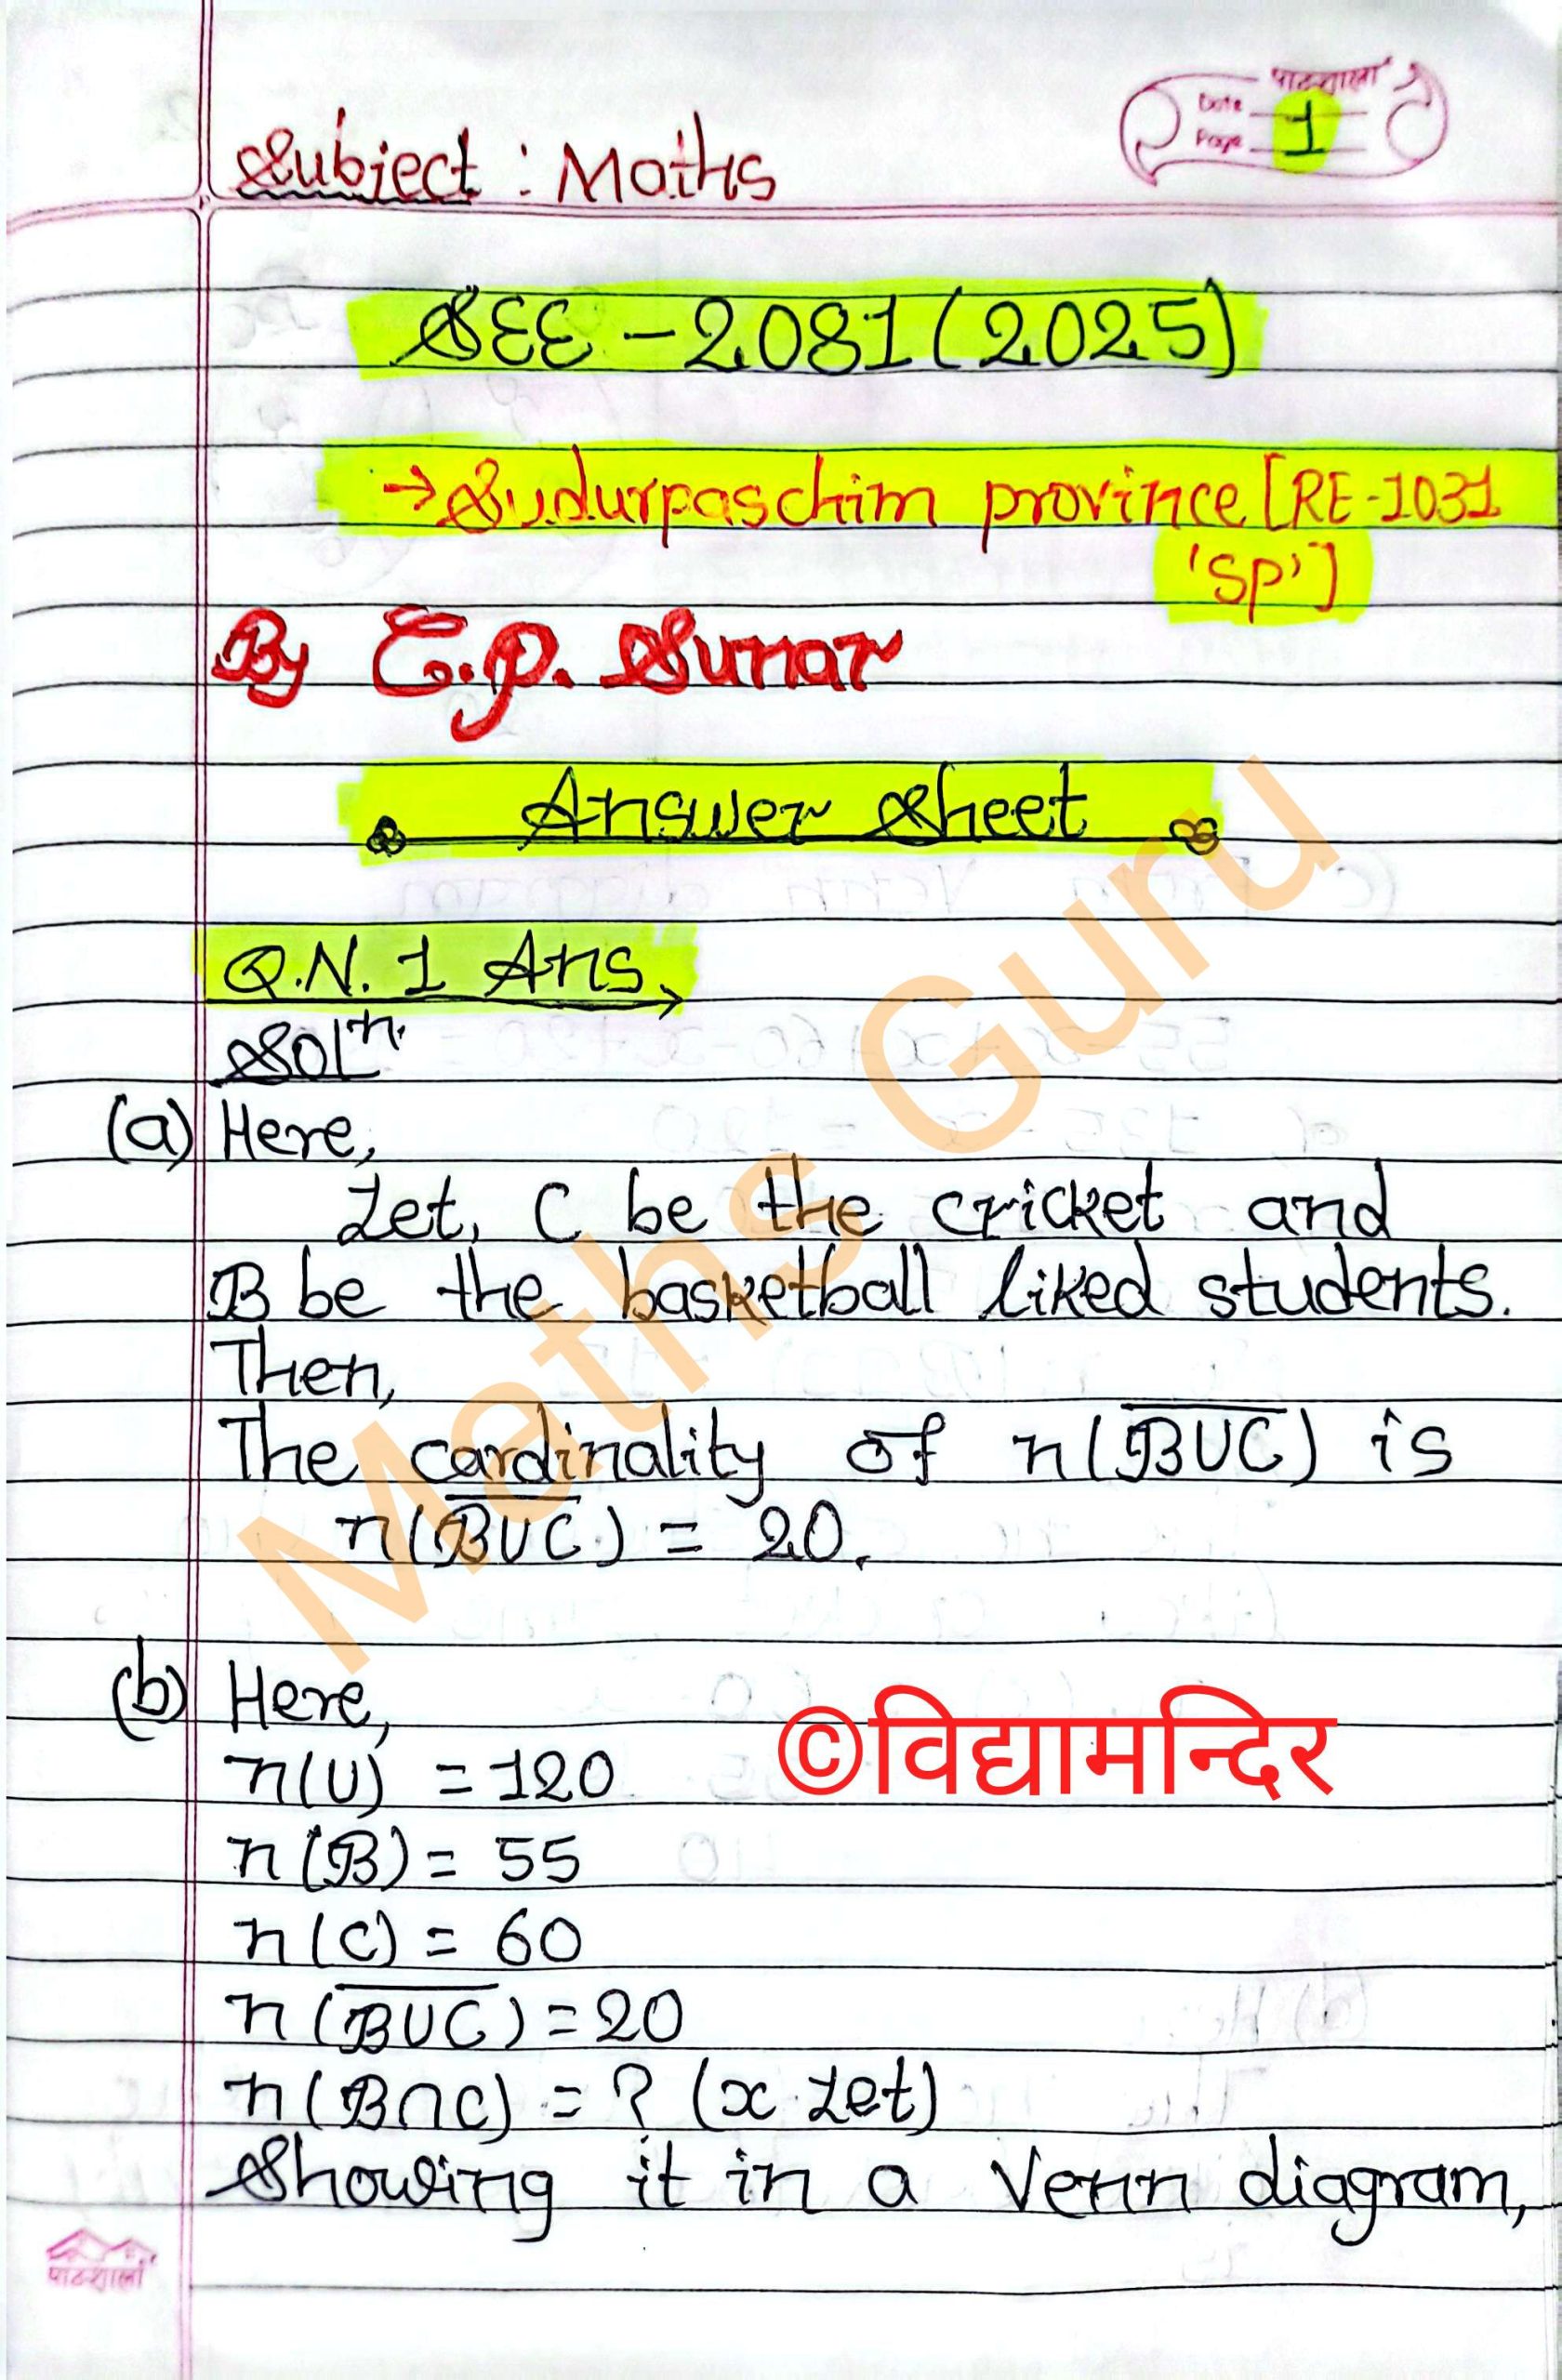 पाठशाला
Date
Page 1
Subject : Maths
SEE - 2081 (2025)
→ Sudurpaschim province [RE-1031
'SP']
By C.P. Sunar
Answer Sheet
Q.N. 1 Ans.
Solⁿ.
(a) Here,
Let, C be the cricket and
B be the basketball liked students.
Then,
The cardinality of n(B̅U̅C̅) is
n(B̅U̅C̅) = 20.
Maths Guru
(b) Here,
©विद्यामन्दिर
n(U) = 120
n(B) = 55
n(C) = 60
n(B̅U̅C̅) = 20
n(B∩C) = ? (x Let)
Showing it in a Venn diagram,
पाठशाला